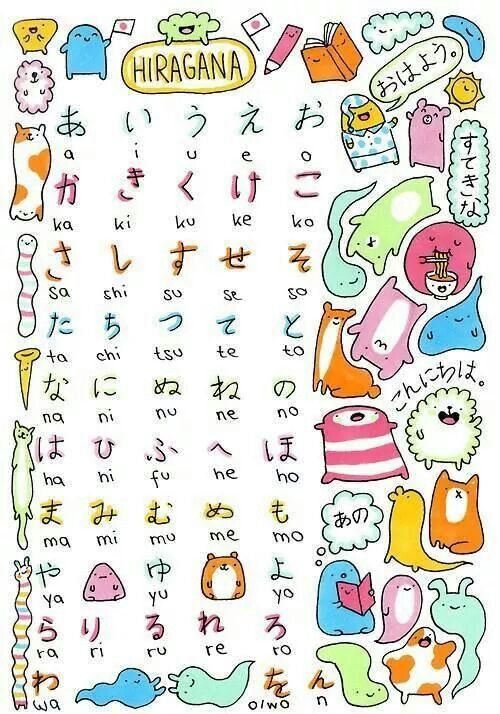 HIRAGANA
おはよう。
すてきな
あ い う え お
a i u e o
か き く け こ
ka ki ku ke ko
さ し す せ そ
sa shi su se so
た ち つ て と
ta chi tsu te to
な に ぬ ね の
na ni nu ne no
こんにちは。
は ひ ふ へ ほ
ha hi fu he ho
ま み む め も
ma mi mu me mo
あの
や ゆ よ
ya yu yo
ら り る れ ろ
ra ri ru re ro
わ を ん
wa o/wo n